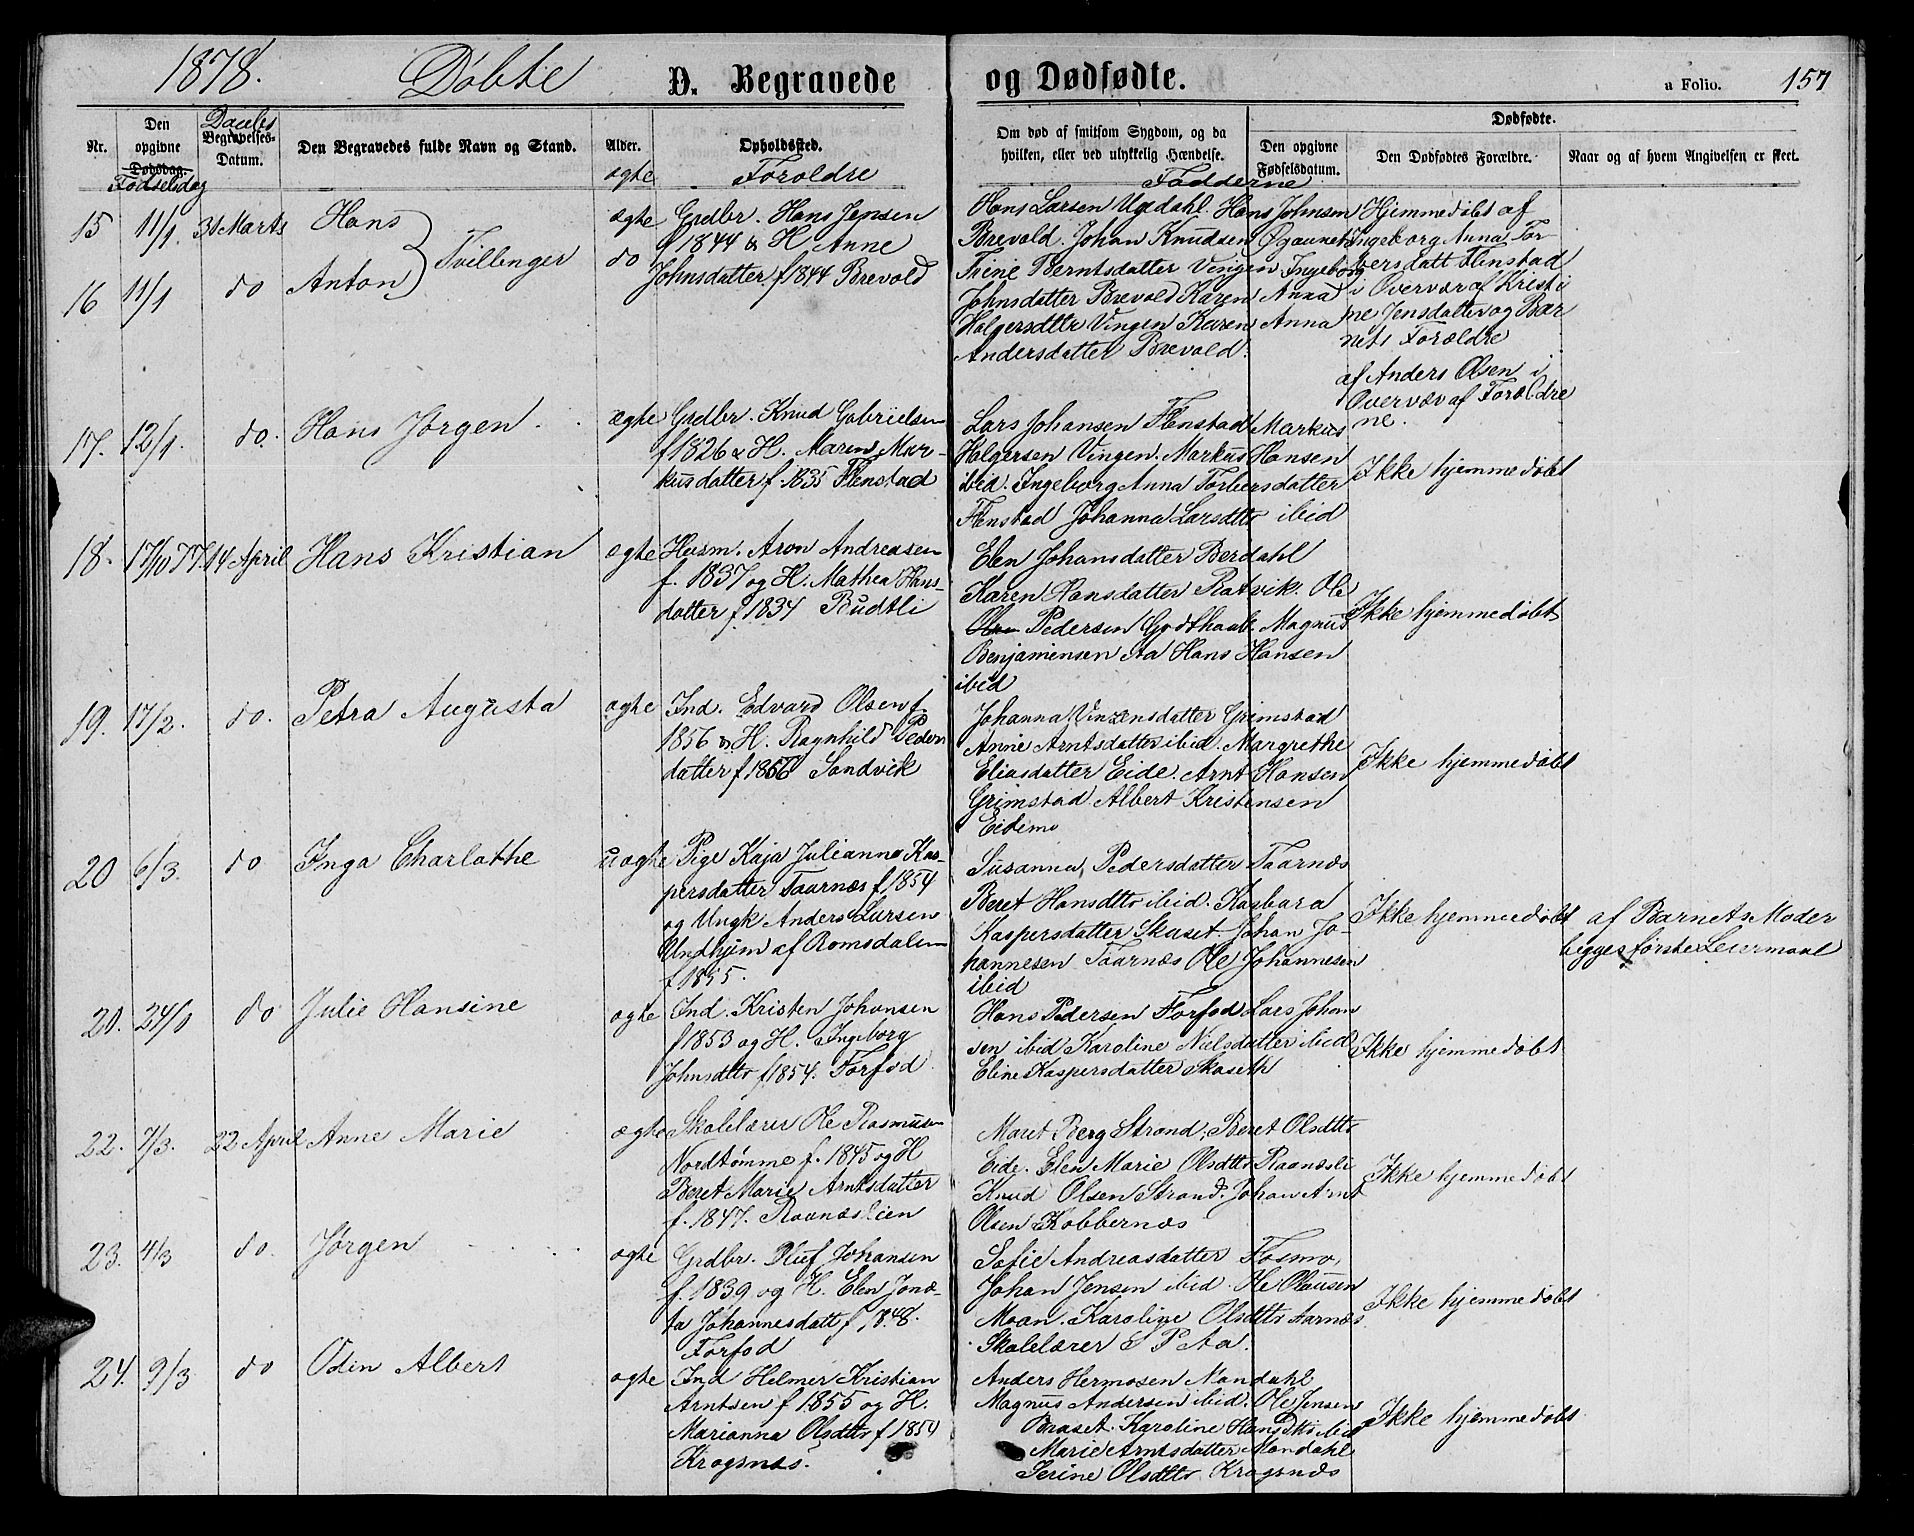 1878. Döbte D. Begravede og Dødfødte. a Folio. 157
Nr.
Den opgivne Dødsdag.
Födselsdag
Daabs
Begravelses-Datum.
Den Begravedes fulde Navn og Stand.
Alder.
ægte
Opholdssted.
Foroldre
Om død af smitsom Sygdom, og da
hvilken, eller ved ulykkelig Hændelse.
Fadderne
Dødfødte.
Den opgivne Fødselsdatum.
Den Dødfødtes Forældre.
Naar og af hvem Angivelsen er skeet.
15 11/1. 31 Marts Hans
16 11/1 do Anton
Tvillinger
ægte
do
Grdbr. Hans Jensen
f 1844 & H. Anne
Johnsdatter f 1844 Brevold
Hans Larsen Ugdahl. Hans Johnsen
Brevold. Johan Knudsen Øgaunet
Trine Berntsdatter Vingen Ingeborg
Johnsdatter Brevold Karen Anna
Holgersdtter Vingen Karen Anna
Andersdatter Brevold.
Hjemmedøbt af
Ingeborg Anna Tor-
bersdatt Flenstad
i Overvær af Kristi
ne Jensdatter og Bar
nets Forældre
17. 12/1. do. Hans Jörgen.
ægte
Grdbr. Knud Gabrielsen
f 1826 & H. Maren Mar-
kusdatter f. 1835 Flenstad
Lars Johansen Flenstad Markus
Holgersen Vingen. Markus Hansen
ibid. Ingeborg Anna Torbersdatter
Flenstad Johanna Larsdtr ibid
af Anders Olsen i
Overvær af Foræ̈ldre
ne.
Ikke hjemmedöbt
18. 17/10 77. 14 April Hans Kristian
ægte
Husm. Aron Andreasen
f. 1837 og H. Mathea Hans-
datter f 1834 Budtli
Elen Johansdatter Berdahl
Karen Hansdatter Ratvik. Ole
Pedersen Godthaab. Magnus
Benjaminsen Aa Hans Hansen
ibid
Ikke hjemmedöbt
19. 17/2. do. Petra Augusta
ægte
Ind. Edvard Olsen f.
1856 & H. Ragnhild Peders
datter f 1856 Sandvik
Johanna Vinzensdatter Grimstad
Anne Arntsdatter ibid. Margrethe
Eliasdatter Eide. Arnt Hansen
Grimstad Albert Kristensen
Eidemo
Ikke hjemmedöbt
20 6/3. do Inga Charlothe
uægte
Pige Kaja Julianna Kas-
persdatter Taarnæs f. 1854
og Ungk Anders Larsen
Undhjem af Romsdalen
f 1855.
Susanna Pedersdatter Taarnæs
Beret Hansdtr ibid. Kasbara
Kaspersdatter Skaset. Johan Jo-
hannesen Taarnæs Ole Johannesen
ibid
Ikke hjemmedöbt
af Barnets Moder
begges første Leiermaal
20. 24/1 do Julie Hansine
ægte
Ind. Kristen Johansen
f 1853 og H. Ingeborg
Johnsdtr f 1854. Forfod
Hans Pedersen Forfod Lars Johan
sen ibid Karoline Nielsdatter ibid
Eline Kaspersdatter Skaseth
Ikke hjemmedöbt
22. 7/3. 22 April Anne Marie
ægte
Skolelærer Ole Rasmusen
Nordtömme f. 1845 og H
Beret Marie Arntsdatter
f. 1847. Raanæslien
Maret Berg Strand, Beret Olsdtr
Eide. Elen Marie Olsdtr Raanæsli
Knud Olsen Strand. Johan Arnt
Olsen Kobbernæs
Ikke hjemmedöbt
23. 4/3 do. Jörgen
ægte
Grdbr. Oluf Johansen
f. 1839 og H. Elen Jonæ-
ta Johannesdatt f. 1848.
Forfod
Sofie Andreasdatter Fosmo,
Johan Jensen ibid. Ole Olausen
Moan. Karoline Olsdtr Aarnæs
Skolelærer S P Aa.
Ikke hjemmedöbt
24. 9/3 do Odin Albert
ægte
Ind Helmer Kristian
Arntsen f 1855 og H.
Marianna Olsdtr f 1854
Krogsnæs.
Anders Hermosen Mandahl
Magnus Andersen ibid. Ole Jensen
Braset. Karoline Hansdtr ibid
Marie Arntsdatter Mandahl
Serine Olsdtr Krogsnæs
Ikke hjemmedöbt